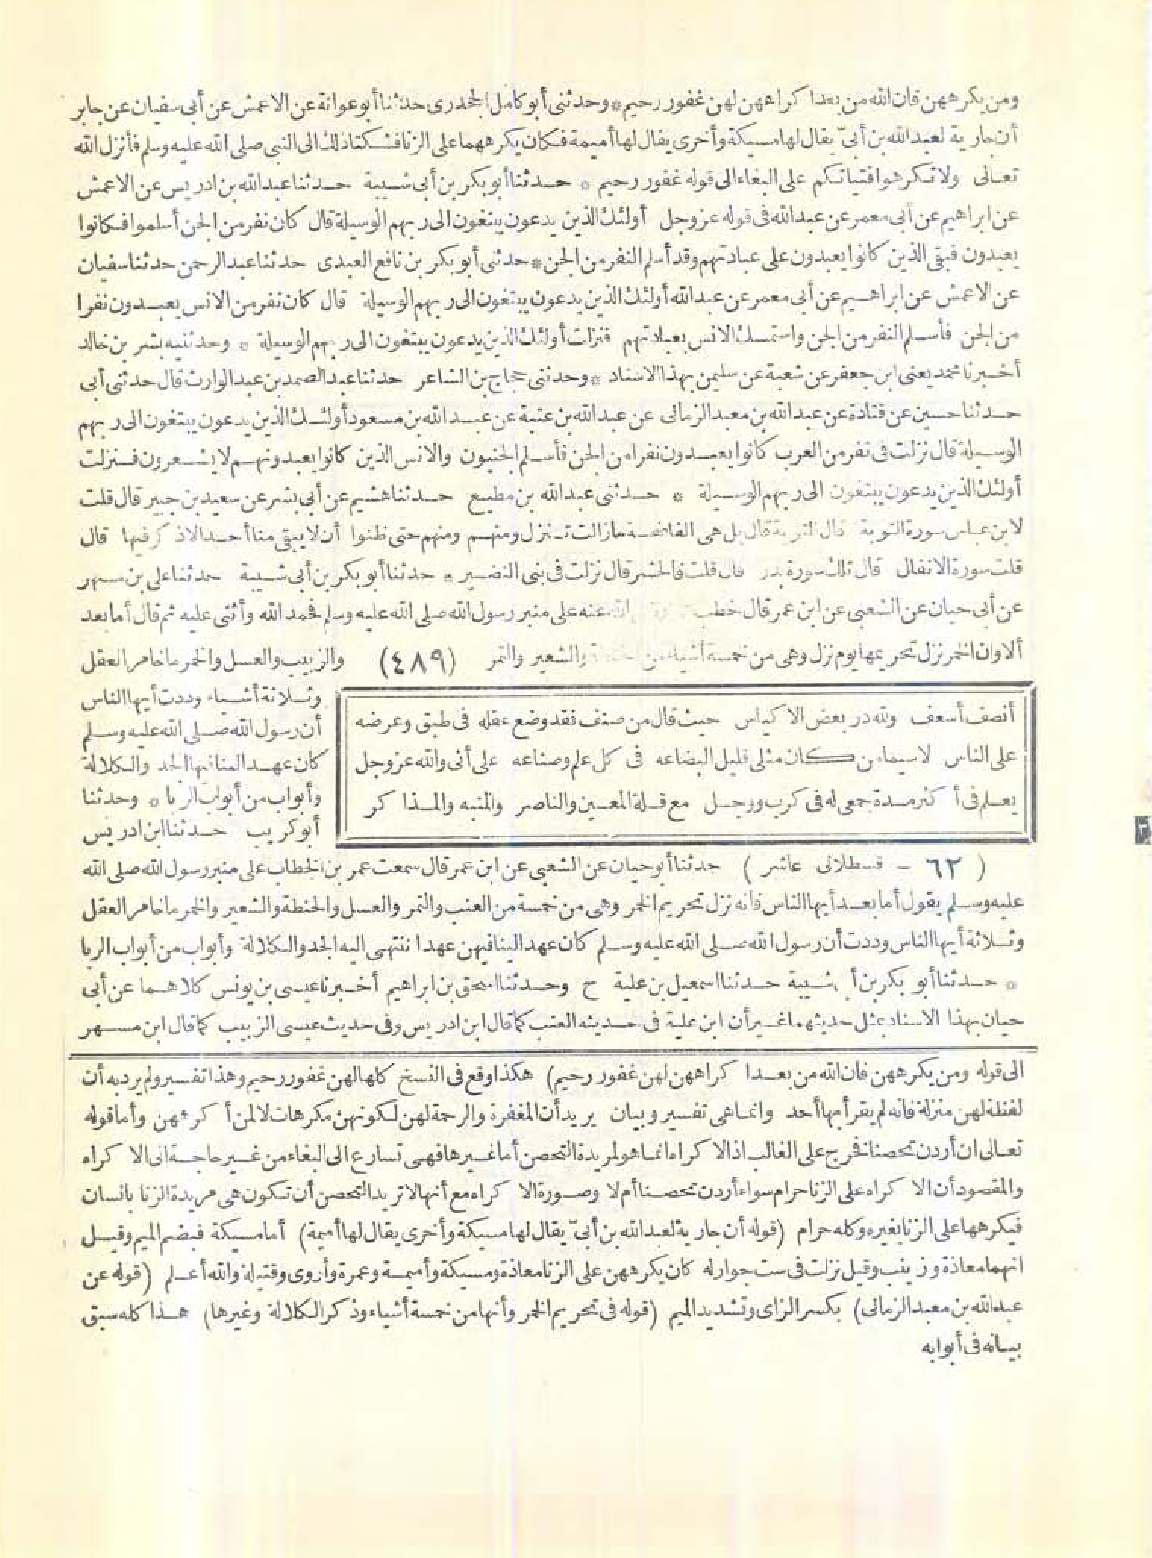 ومن يكرههن فان الله من بعد اكراههن لهن غفور رحيم * وحدثني أبو كامل الجحدرى حدثنا أبو عوانة عن الاعمش عن أبى سفيان عن جابر
أن جارية لعبد الله بن أبىّ يقال لها مسيكة وأخرى يقال لها أميمة فكان يكرههما على الزنا فشكتا ذلك الى النبى صلى الله عليه وسلم فأنزل الله
تعالى ولا تكرهوا فتياتكم على البغاء الى قوله غفور رحيم * حدثنا أبو بكر بن أبى شيبة حدثنا عبد الله بن ادريس عن الاعمش
عن ابراهيم عن أبى معمر عن عبد الله فى قوله عز وجل أولئك الذين يدعون يبتغون الى ربهم الوسيلة قال كان نفر من الجن أسلموا فكانوا
يعبدون فبقى الذين كانوا يعبدون على عبادتهم وقد أسلم النفر من الجن * حدثنى أبو بكر بن نافع العبدى حدثنا عبد الرحمن حدثنا سفيان
عن الاعمش عن ابراهيم عن أبى معمر عن عبد الله أولئك الذين يدعون يبتغون الى ربهم الوسيلة قال كان نفر من الانس يعبدون نفرا
من الجن فأسلم النفر من الجن واستمسك الانس بعبادتهم فنزلت أولئك الذين يدعون يبتغون الى ربهم الوسيلة * وحدثنيه بشر بن خالد
أخبرنا محمد يعنى ابن جعفر عن شعبة عن سليمن بهذا الاسناد * وحدثنى حجاج بن الشاعر حدثنا عبد الصمد بن عبد الوارث قال حدثنى أبى
حدثنا حسين عن قتادة عن عبد الله بن معبد الزمانى عن عبد الله بن عتبة عن عبد الله بن مسعود أولئك الذين يدعون يبتغون الى ربهم
الوسيلة قال نزلت فى نفر من العرب كانوا يعبدون نفرا من الجن فأسلم الجنيون والانس الذين كانوا يعبدونهم لا يشعرون فنزلت
أولئك الذين يدعون يبتغون الى ربهم الوسيلة * حدثنى عبد الله بن مطيع حدثنا هشيم عن أبى بشر عن سعيد بن جبير قال قلت
لابن عباس سورة التوبة قال التوبة قال بل هى الفاضحة ما زالت تنزل ومنهم ومنهم حتى ظنوا أن لا يبقى منا أحد الا ذكر فيها قال
قلت سورة الانفال قال تلك سورة بدر قال قلت فالحشر قال نزلت فى بنى النضير * حدثنا أبو بكر بن أبى شيبة حدثنا على بن مسهر
عن أبى حيان عن الشعبى عن ابن عمر قال خطب الله عنه على منبر رسول الله صلى الله عليه وسلم فحمد الله وأثنى عليه ثم قال أما بعد
ألا وان الخمر نزل تحريمها يوم نزل وهى من خمسة أشياء من الحنطة والشعير والتمر (٤٨٩) والزبيب والعسل والخمر ما خامر العقل
أنصف أسعف ولله در بعض الاكياس حيث قال من صنف فقد وضع عقله فى طبق وعرضه
على الناس لا سيما من كان مثلى قليل البضاعه فى كل علم وصناعه على أنى والله عز وجل
يعلم فى أكثر مدة جمعى له فى كرب ووجل مع قلة المعين والناصر والمنبه والمذاكر
وثلاثة أشياء وددت أيها الناس
أن رسول الله صلى الله عليه وسلم
كان عهد الينا فيها الجد والكلالة
وأبواب من أبواب الربا * وحدثنا
أبو كريب حدثنا ابن ادريس
(٦٢ - قسطلانى عاشر) حدثنا أبو حيان عن الشعبى عن ابن عمر قال سمعت عمر بن الخطاب على منبر رسول الله صلى الله
عليه وسلم يقول أما بعد أيها الناس فانه نزل تحريم الخمر وهى من خمسة من العنب والتمر والعسل والحنطة والشعير والخمر ما خامر العقل
وثلاثة أيها الناس وددت أن رسول الله صلى الله عليه وسلم كان عهد الينا فيهن عهدا ننتهى اليه الجد والكلالة وأبواب من أبواب الربا
* حدثنا أبو بكر بن أبى شيبة حدثنا اسمعيل بن علية ح وحدثنا اسحق بن ابراهيم أخبرنا عيسى بن يونس كلاهما عن أبى
حيان بهذا الاسناد بمثل حديثهما غير أن ابن علية فى حديثه العنب كما قال ابن ادريس وفى حديث عيسى الزبيب كما قال ابن مسهر
الى قوله ومن يكرههن فان الله من بعد اكراههن لهن غفور رحيم) هكذا وقع فى النسخ كلها لهن غفور رحيم وهذا تفسير ولم يرد به أن
لفظة لهن منزلة فانه لم يقرأ بها أحد وانما هى تفسير وبيان يريد أن المغفرة والرحمة لهن لكونهن مكرهات لا لمن أكرههن وأما قوله
تعالى ان أردن تحصنا فخرج على الغالب اذ الاكراه انما هو لمريدة التحصن أما غيرها فهى تسارع الى البغاء من غير حاجة الى الاكراه
والمقصود أن الاكراه على الزنا حرام سواء أردن تحصنا أم لا وصورة الاكراه مع أنها لا تريد التحصن أن تكون هى مريدة الزنا بانسان
فيكرهها على الزنا بغيره وكله حرام (قوله أن جارية لعبد الله بن أبىّ يقال لها مسيكة وأخرى يقال لها أميمة) أما مسيكة فبضم الميم وقيل
انهما معاذة وزينب وقيل نزلت فى ست جوار له كان يكرههن على الزنا معاذة ومسيكة وأميمة وعمرة وأروى وقتيلة والله أعلم (قوله عن
عبد الله بن معبد الزمانى) بكسر الزاى وتشديد الميم (قوله فى تحريم الخمر وأنها من خمسة أشياء وذكر الكلالة وغيرها) هذا كله سبق
بيانه فى أبوابه